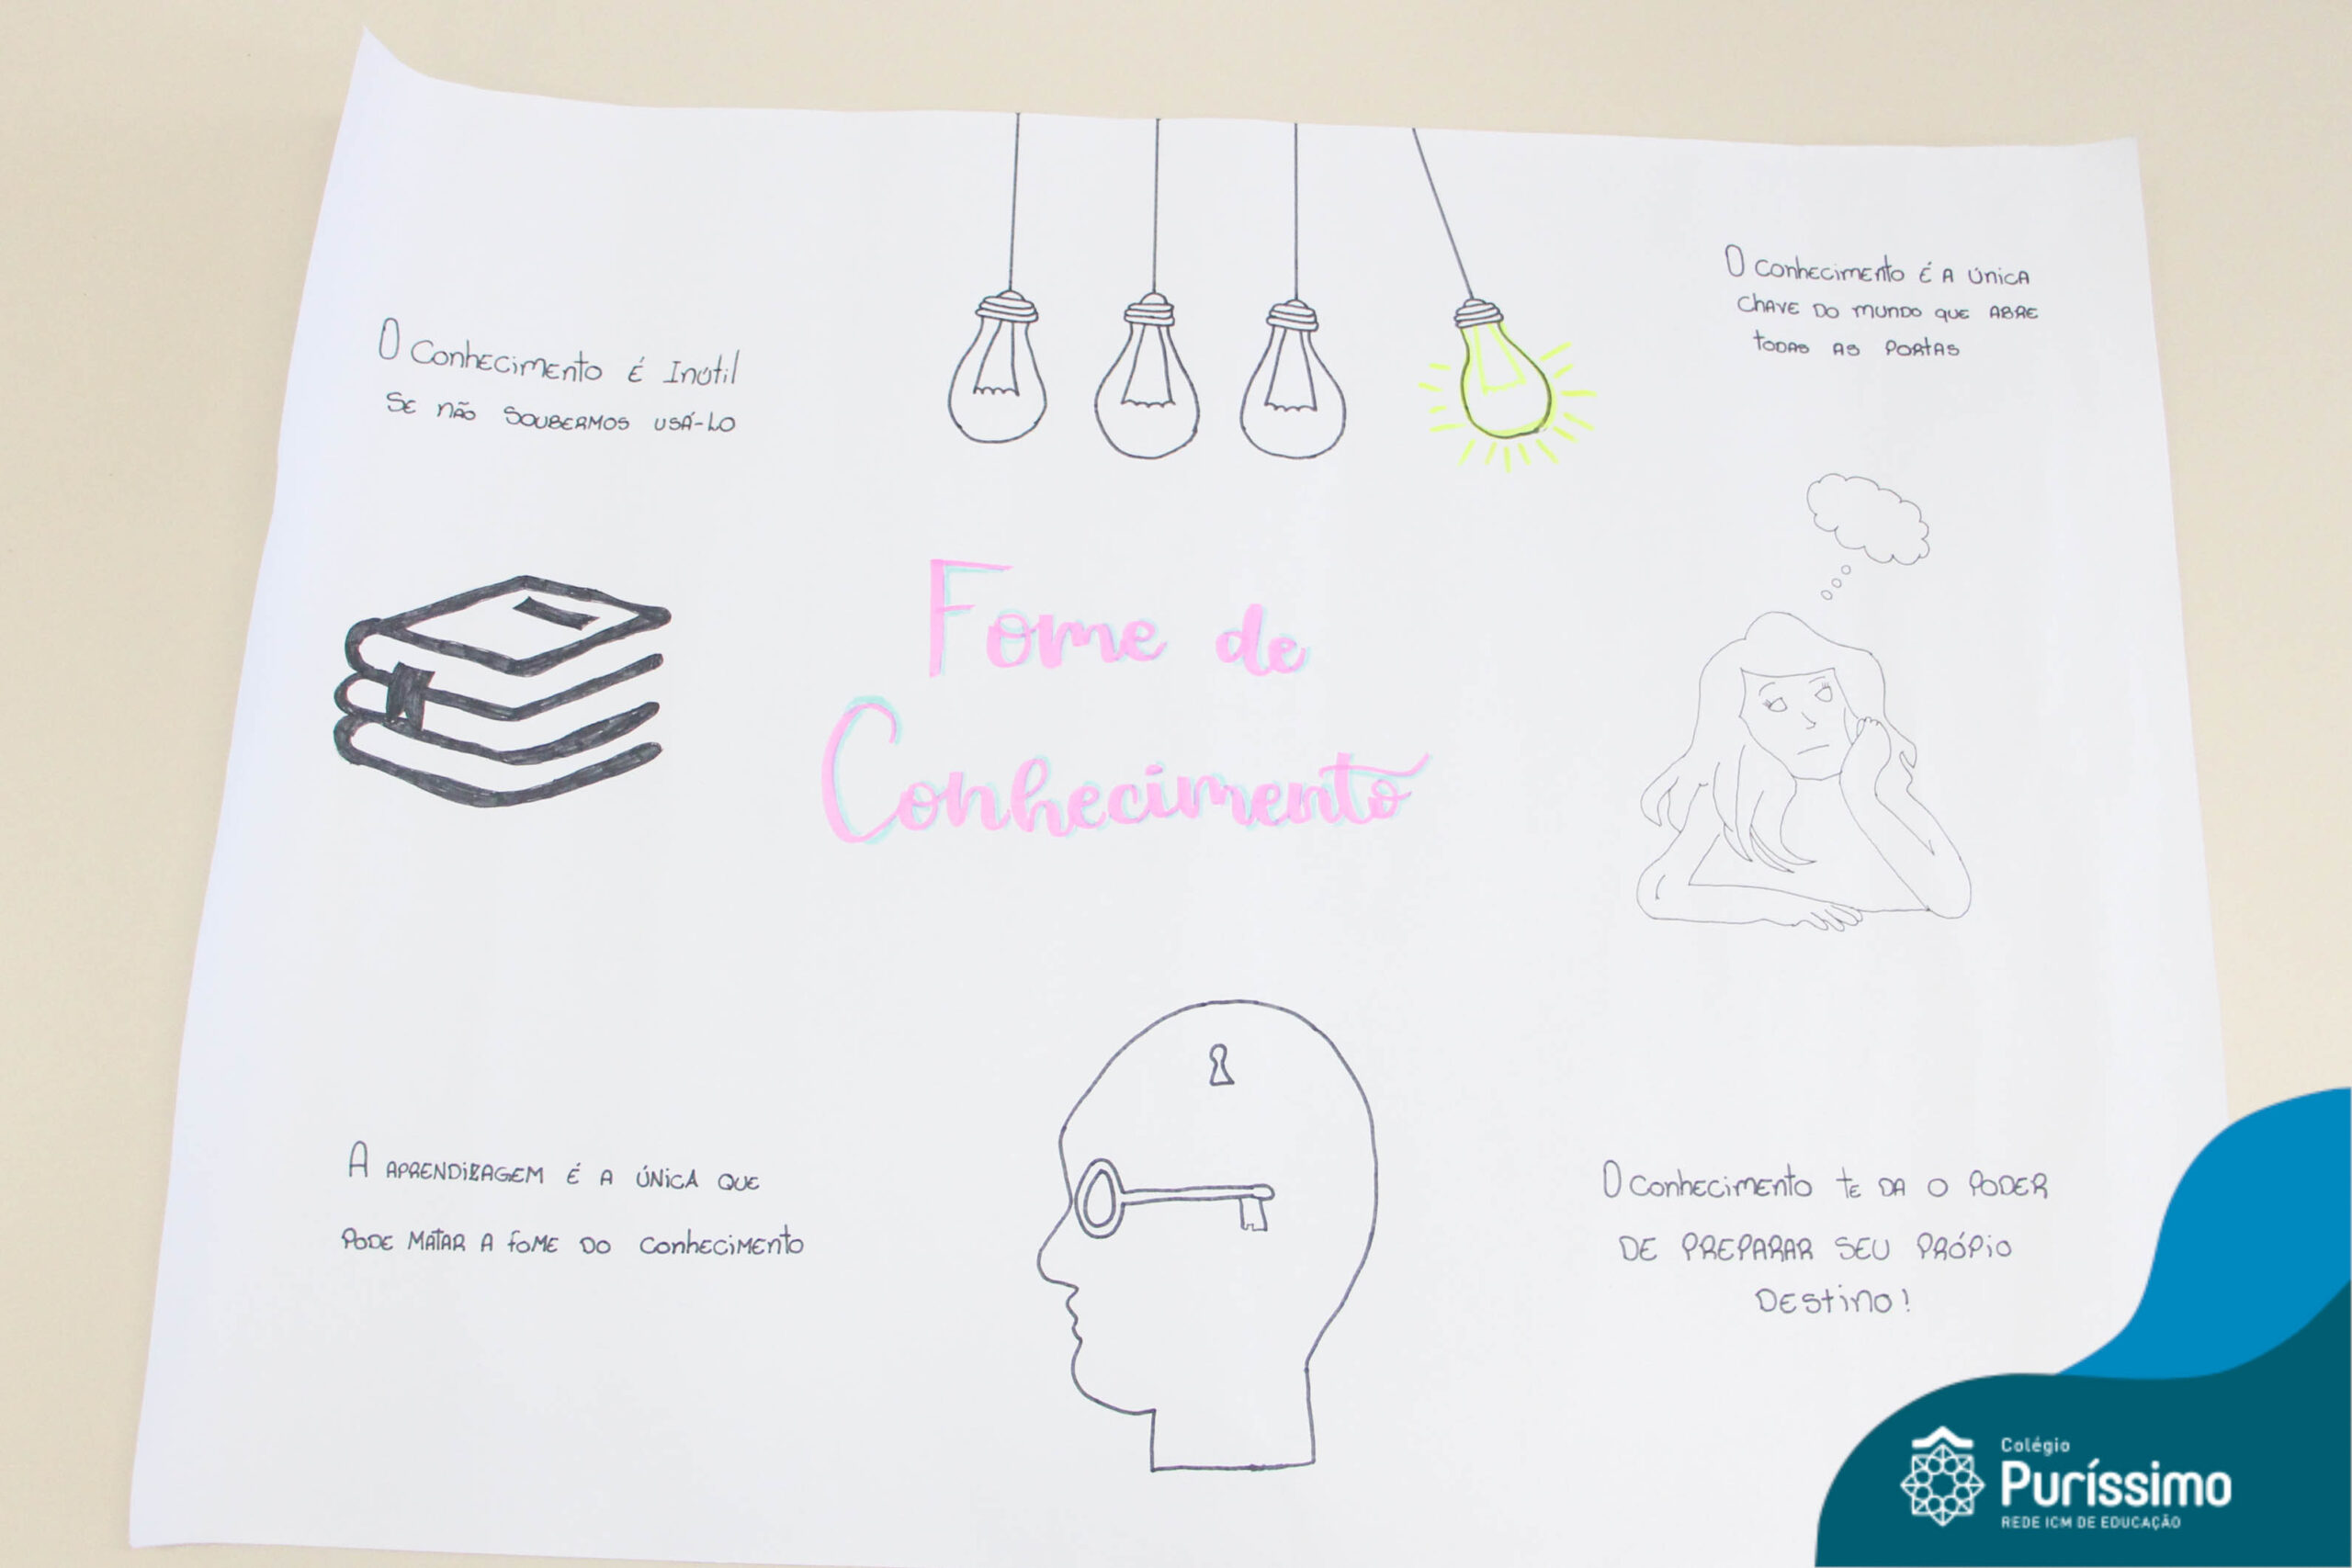 O conhecimento é inútil
se não soubermos usá-lo
O conhecimento é a única
chave do mundo que abre
todas as portas
Fome de
Conhecimento
A aprendizagem é a única que
pode matar a fome do conhecimento
O conhecimento te da o poder
de preparar seu própio
destino!
Colégio
Puríssimo
REDE ICM DE EDUCAÇÃO